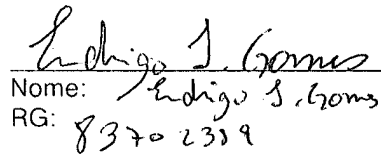 Endrigo S. Gomes
Nome: Endrigo S. Gomes
RG: 83702389